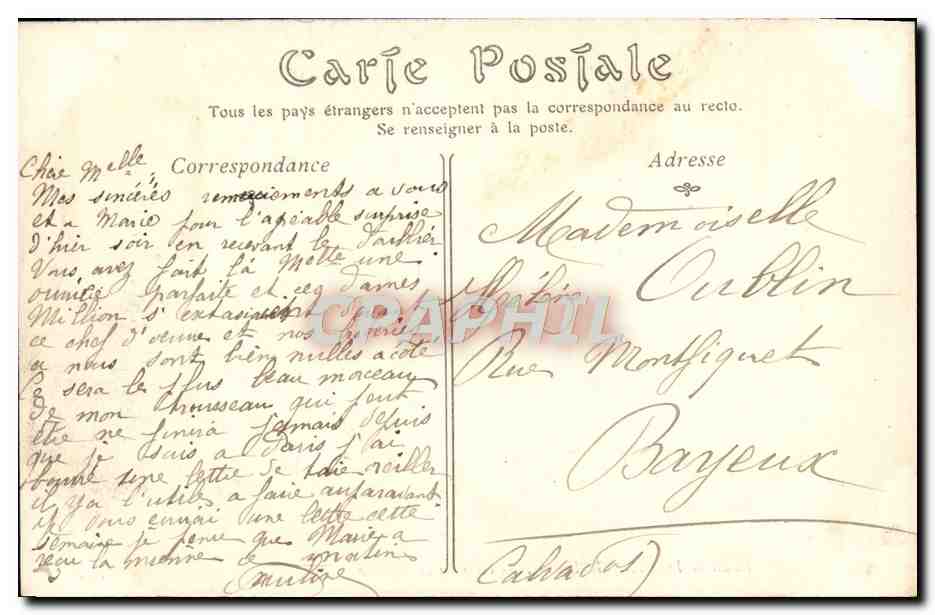 Carte Postale
Tous les pays étrangers n'acceptent pas la correspondance au recto.
Se renseigner à la poste.
Correspondance
Chère Melle,
Mes sincères remerciements a vous
et a Marie pour l'agréable surprise
d'hier soir en recevant le
Vous avez fait là Melle une
parfaite et ces dames
Million s'extasient
ce chef d'oeuvre et nos
a nous sont bien nulles a coté
Ce sera le plus beau morceau
de mon trousseau qui peut
être ne finira jamais depuis
que je suis a Paris j'ai
une lettre de taie oreiller
il y a l'utile a faire auparavant
une lettre cette
semaine je pense que Marie a
reçu la mienne ce matin
Adresse
Mademoiselle
Oublin
Rue Montfiquet
Bayeux
(Calvados)
CPAPHIL